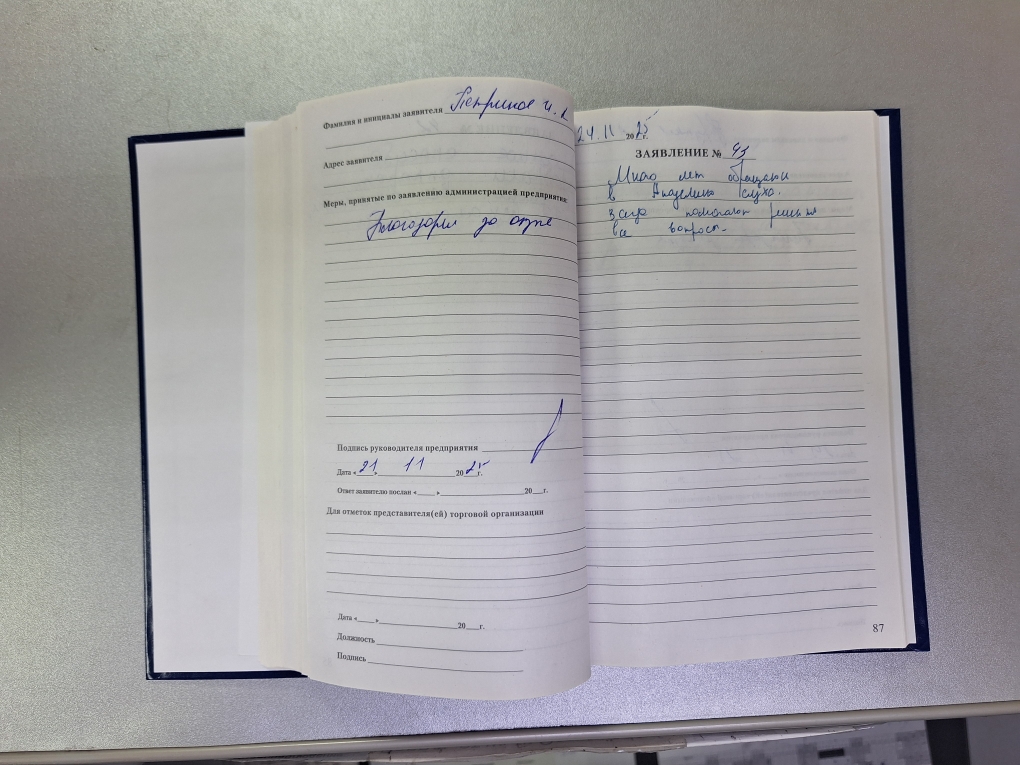 Фамилия и инициалы заявителя
Адрес заявителя
Меры, принятые по заявлению администрацией предприятия:
Благодарим за отзыв
Подпись руководителя предприятия
Дата « 21 » 11 20 25 г.
Ответ заявителю послан « » 20 г.
Для отметок представителя(ей) торговой организации
Дата « » 20 г.
Должность
Подпись
24.11 20 25 г.
ЗАЯВЛЕНИЕ № 43
Много лет обращаюсь
в Академию слуха.
помогают решить
все вопросы.
87